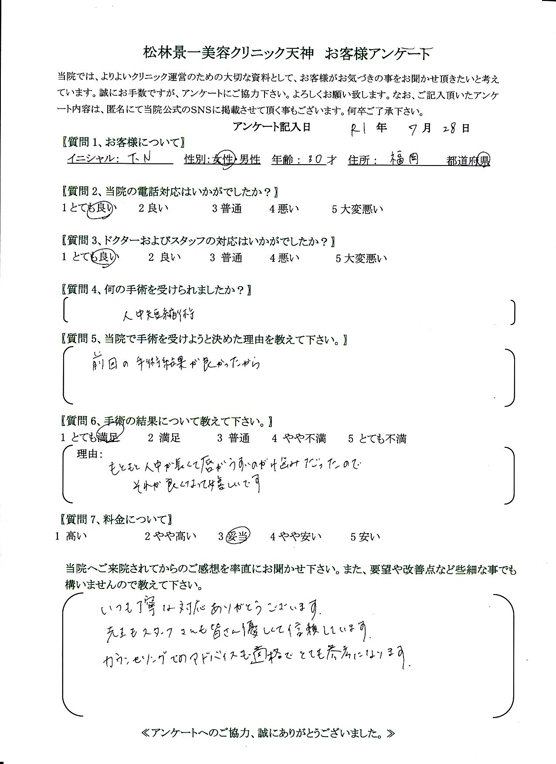 松林景一美容クリニック天神　お客様アンケート
当院では、よりよいクリニック運営のための大切な資料として、お客様がお気づきの事をお聞かせ頂きたいと考え
ています。誠にお手数ですが、アンケートにご協力下さい。よろしくお願い致します。なお、ご記入頂いたアンケ
ート内容は、匿名にて当院公式のSNSに掲載させて頂く事もございます。何卒ご了承下さい。
アンケート記入日　R1 年　7 月 28 日
〖質問 1、お客様について〗
イニシャル： T.N　性別：女性・男性　年齢：30 才　住所：福岡　都道府県
〖質問 2、当院の電話対応はいかがでしたか？〗
1 とても良い　2 良い　3 普通　4 悪い　5 大変悪い
〖質問 3、ドクターおよびスタッフの対応はいかがでしたか？〗
1 とても良い　2 良い　3 普通　4 悪い　5 大変悪い
〖質問 4、何の手術を受けられましたか？〗
人中短縮術
〖質問 5、当院で手術を受けようと決めた理由を教えて下さい。〗
前回の手術結果が良かったから
〖質問 6、手術の結果について教えて下さい。〗
1 とても満足　2 満足　3 普通　4 やや不満　5 とても不満
理由：
もともと人中が長くて唇がうすいのが悩みだったので
それが良くなって嬉しいです
〖質問 7、料金について〗
1 高い　2 やや高い　3 妥当　4 やや安い　5 安い
当院へご来院されてからのご感想を率直にお聞かせ下さい。また、要望や改善点など些細な事でも
構いませんので教えて下さい。
いつも丁寧な対応ありがとうございます。
先生もスタッフさんも皆さん優しくて信頼しています。
カウンセリングでのアドバイスも適格でとても参考になります。
≪アンケートへのご協力、誠にありがとうございました。≫